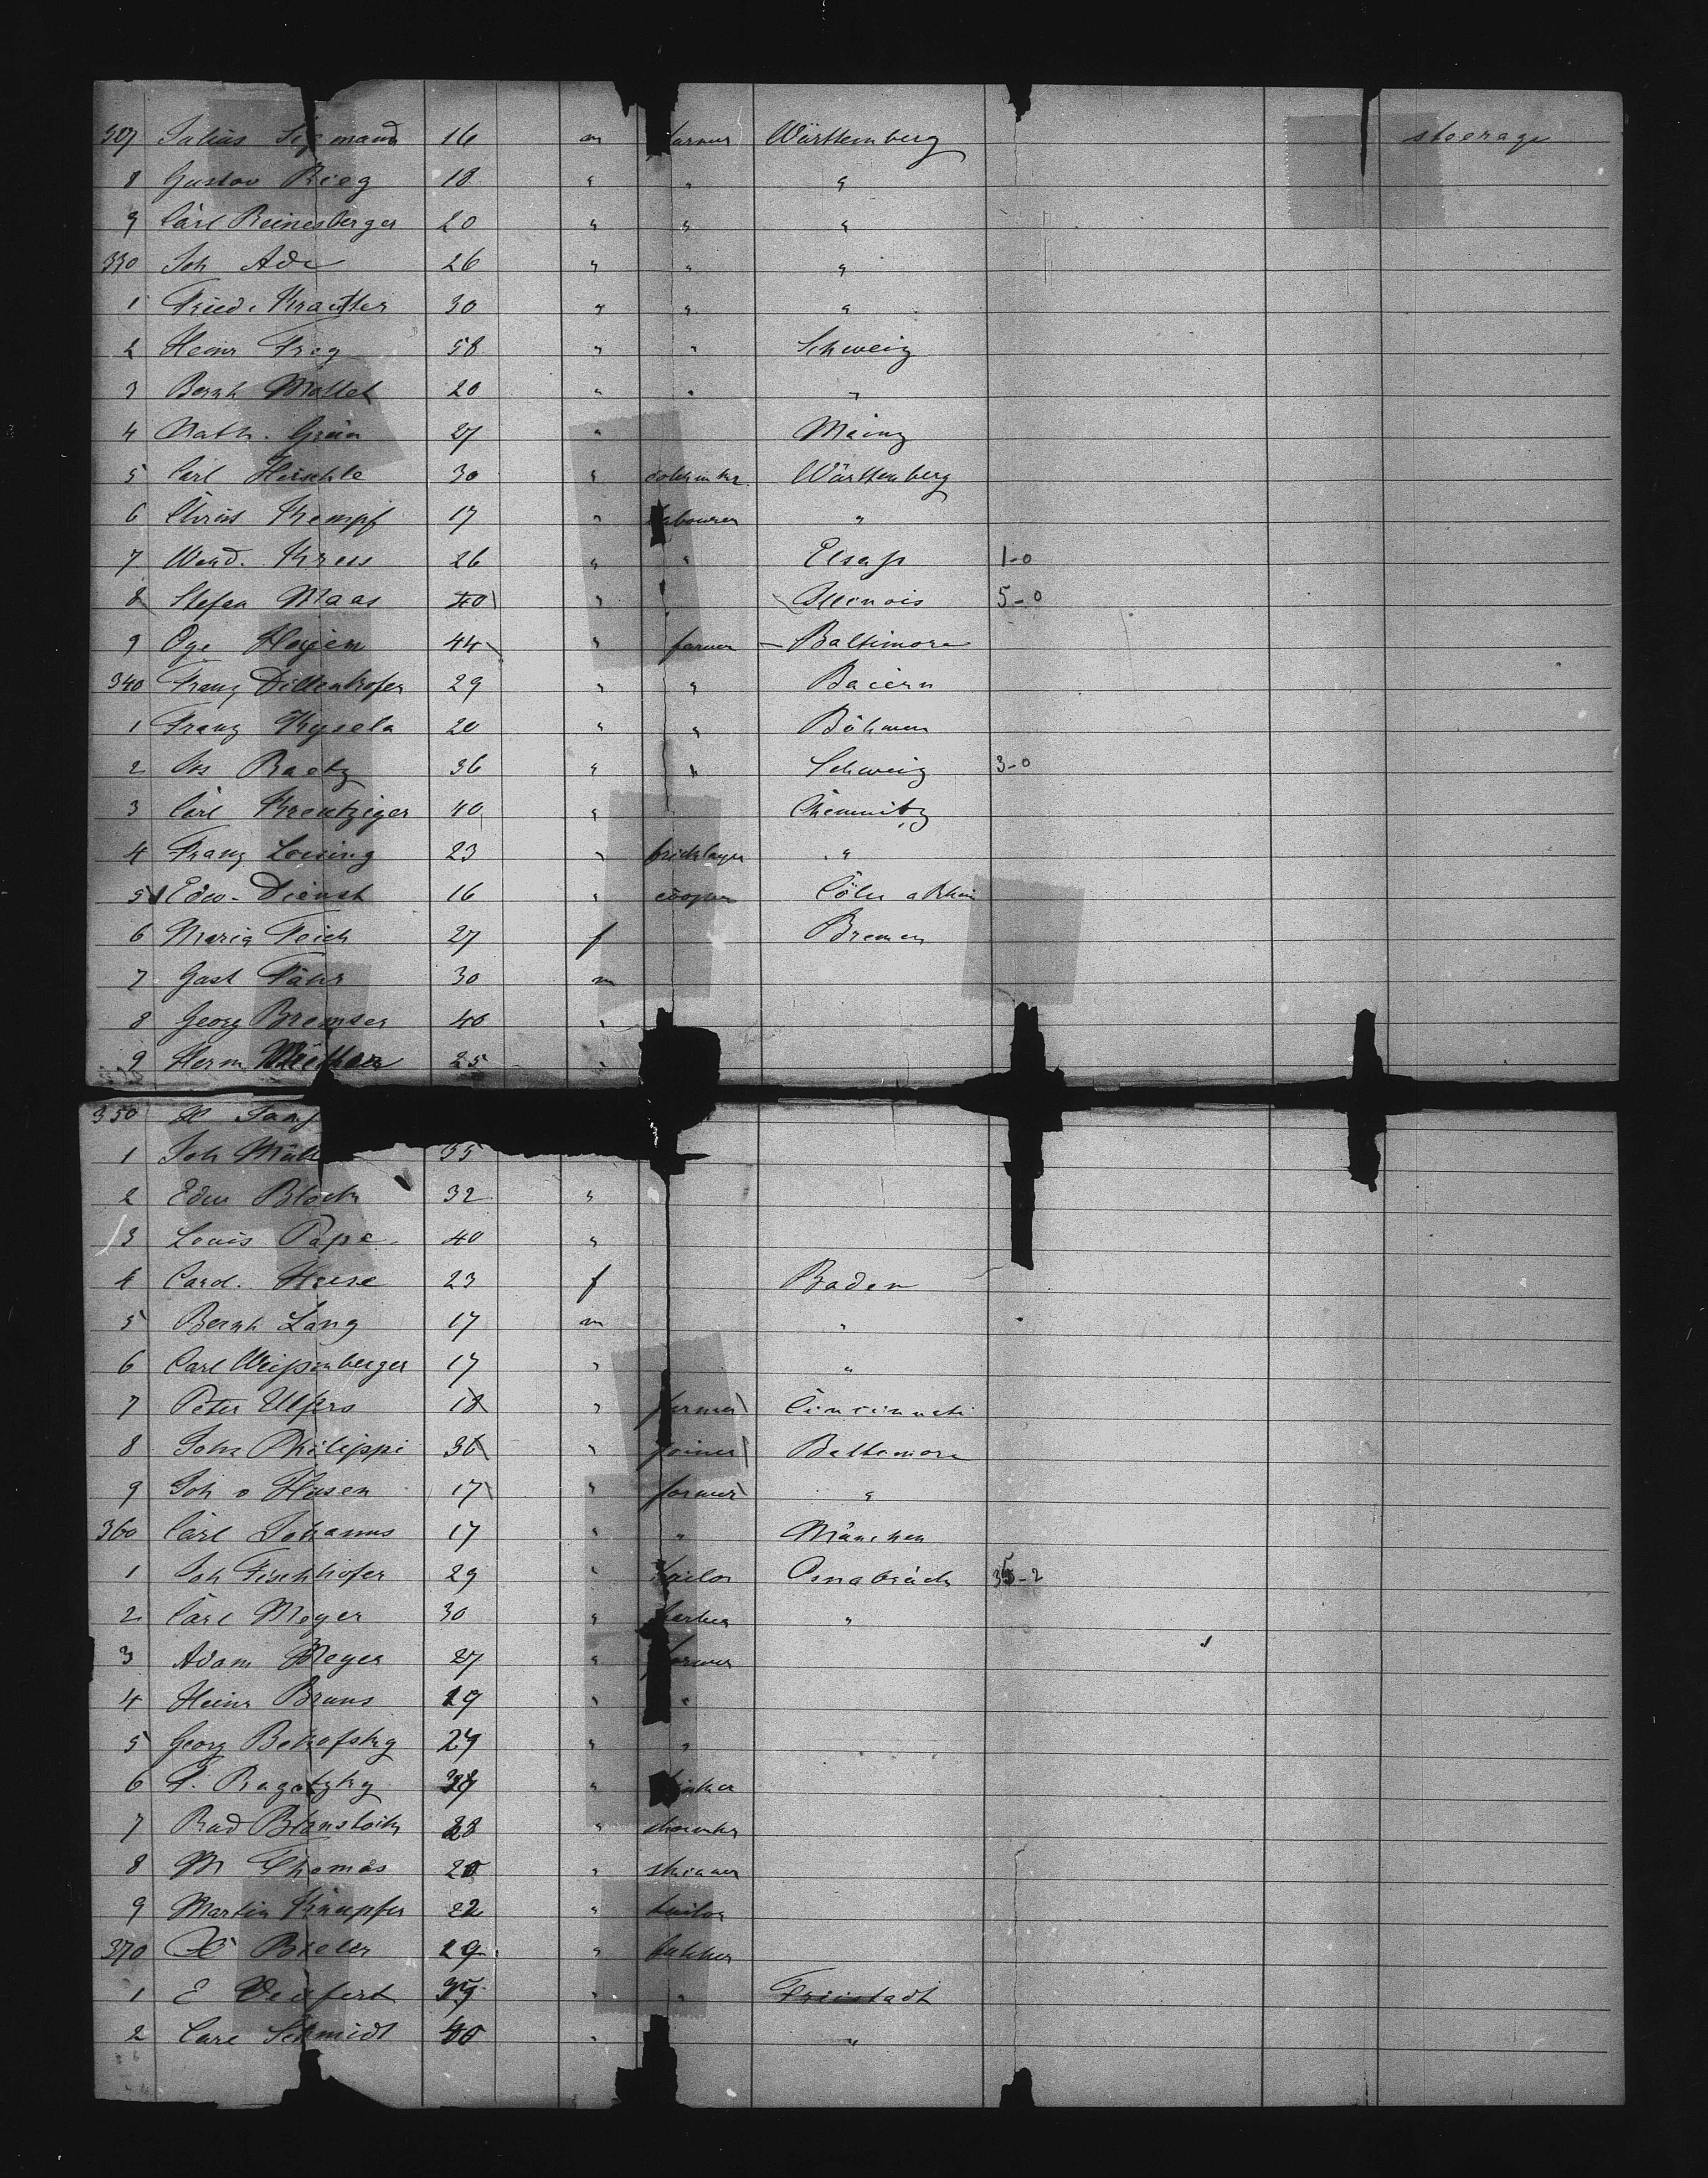 327 Julius Sigmand 16 m farmer Württemberg steerage
8 Gustav Rieg 18 " " "
9 Carl Reinesberger 20 " " "
330 Joh Ade 26 " " "
1 Fried. Krautter 30 " " "
2 Heinr Frey 58 " " Schweiz
3 Bernh Mollet 20 " " "
4 Nath. Grün 27 " Mainz
5 Carl Hirschle 30 " Württemberg
6 Christ Kempf 17 " labourer "
7 Wend. Kress 26 " " Elsaß 1-0
8 Stefan Maas 40 " Illinois 5-0
9 44 " farmer Baltimore
340 Franz Dillenhofer 29 " " Baiern
1 Franz Kysela 20 " " Böhmen
2 Jos Raetz 36 " " Schweiz 3-0
3 Carl Kreutziger 40 " Chemnitz
4 Franz Loesing 23 " bricklayer "
5 Edw. Dienst 16 " cooper Cöln a Rhein
6 Maria Teich 27 f Bremen
7 Gust Fähr 30 m
8 Georg Bremser 40 "
9 Herm 25 "
350
1 Joh Müll 35
2 Edw Block 32 "
3 Louis Pape 40 "
4 Carol. Heese 23 f Baden
5 Bernh Lang 17 m "
6 Carl Weißenberger 17 " "
7 Peter Ulfers 18 " farmer Cincinnati
8 John Philippi 36 " joiner Baltomore
9 Joh v Husen 17 " farmer "
360 Carl Johanns 17 " " München
1 Joh Fischhofer 29 " tailor Osnabrück
2 Carl Meyer 30 " "
3 Adam Meyer 27 " farmer
4 Heinr Bruns 19 " "
5 Georg Bekofsky 29 " "
6 F. Ragotzky "
7 Rud 28 "
8 M Thomas 20 "
9 Martin Knupfer 22 " tailor
370 29 "
1 E 39 " " Freistadt
2 Carl Schmidt 40 " "